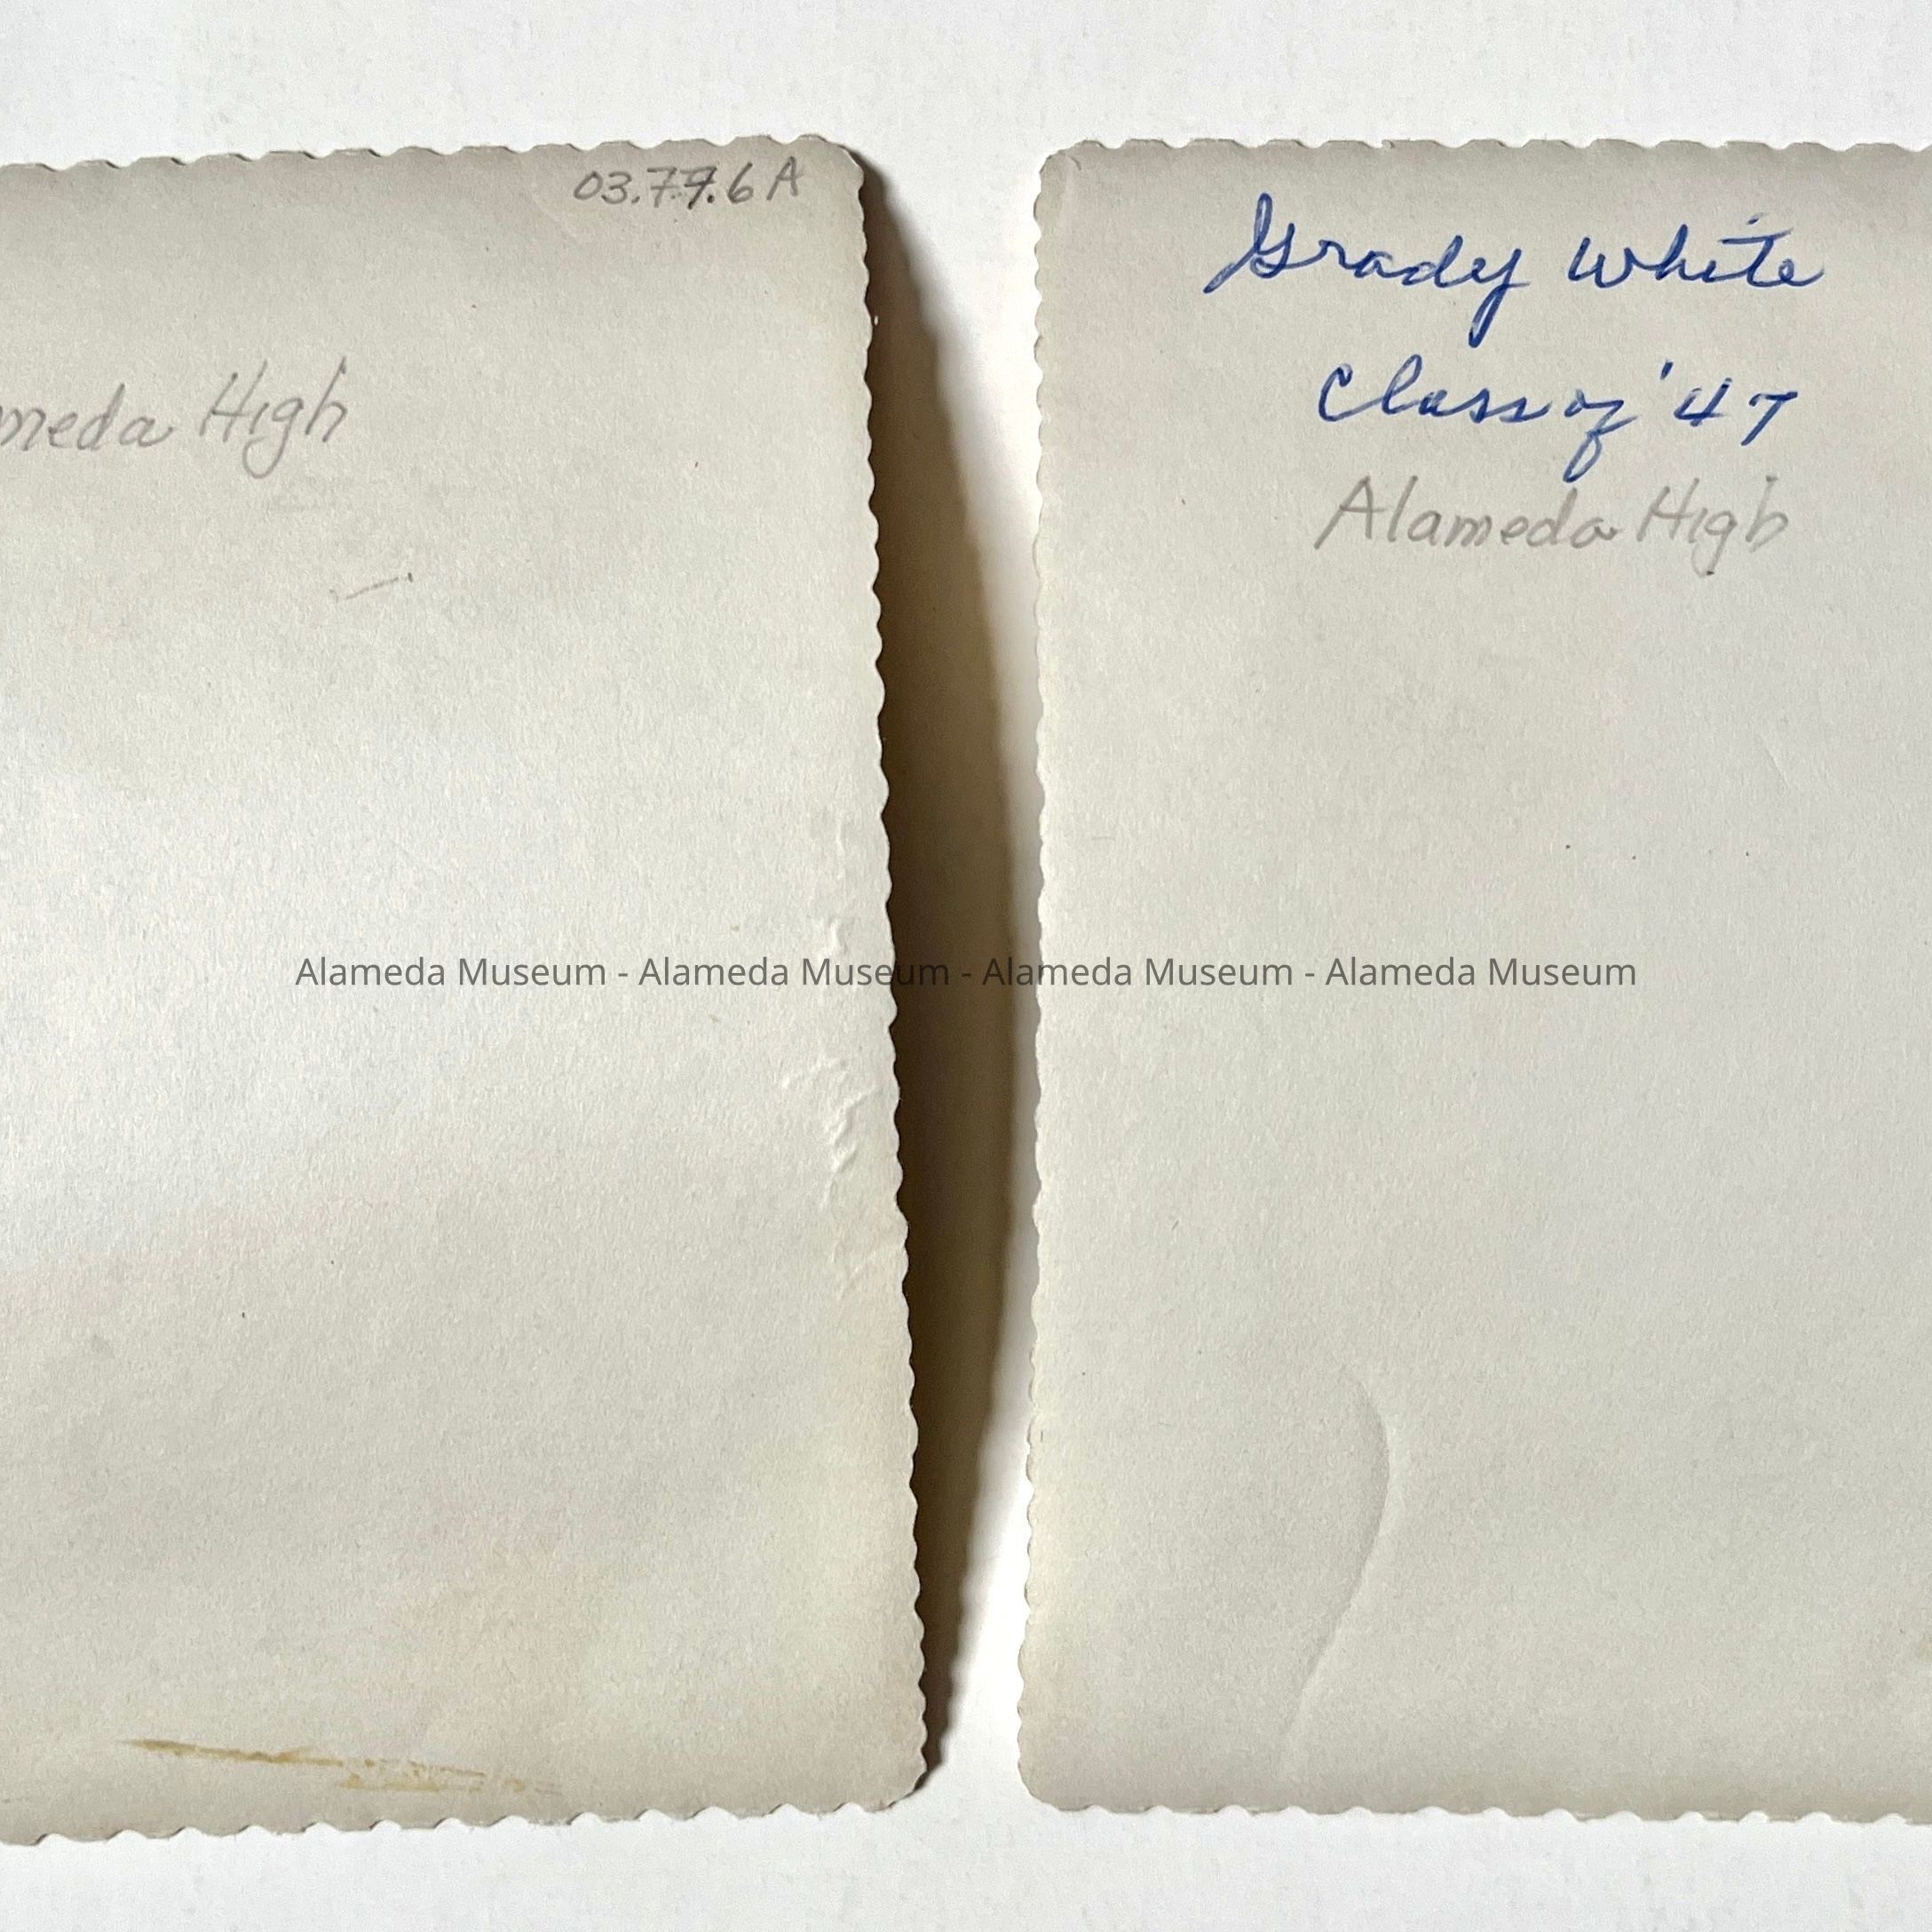 03.79.6 A
meda High
Grady White
Class of '47
Alameda High
Alameda Museum - Alameda Museum - Alameda Museum - Alameda Museum